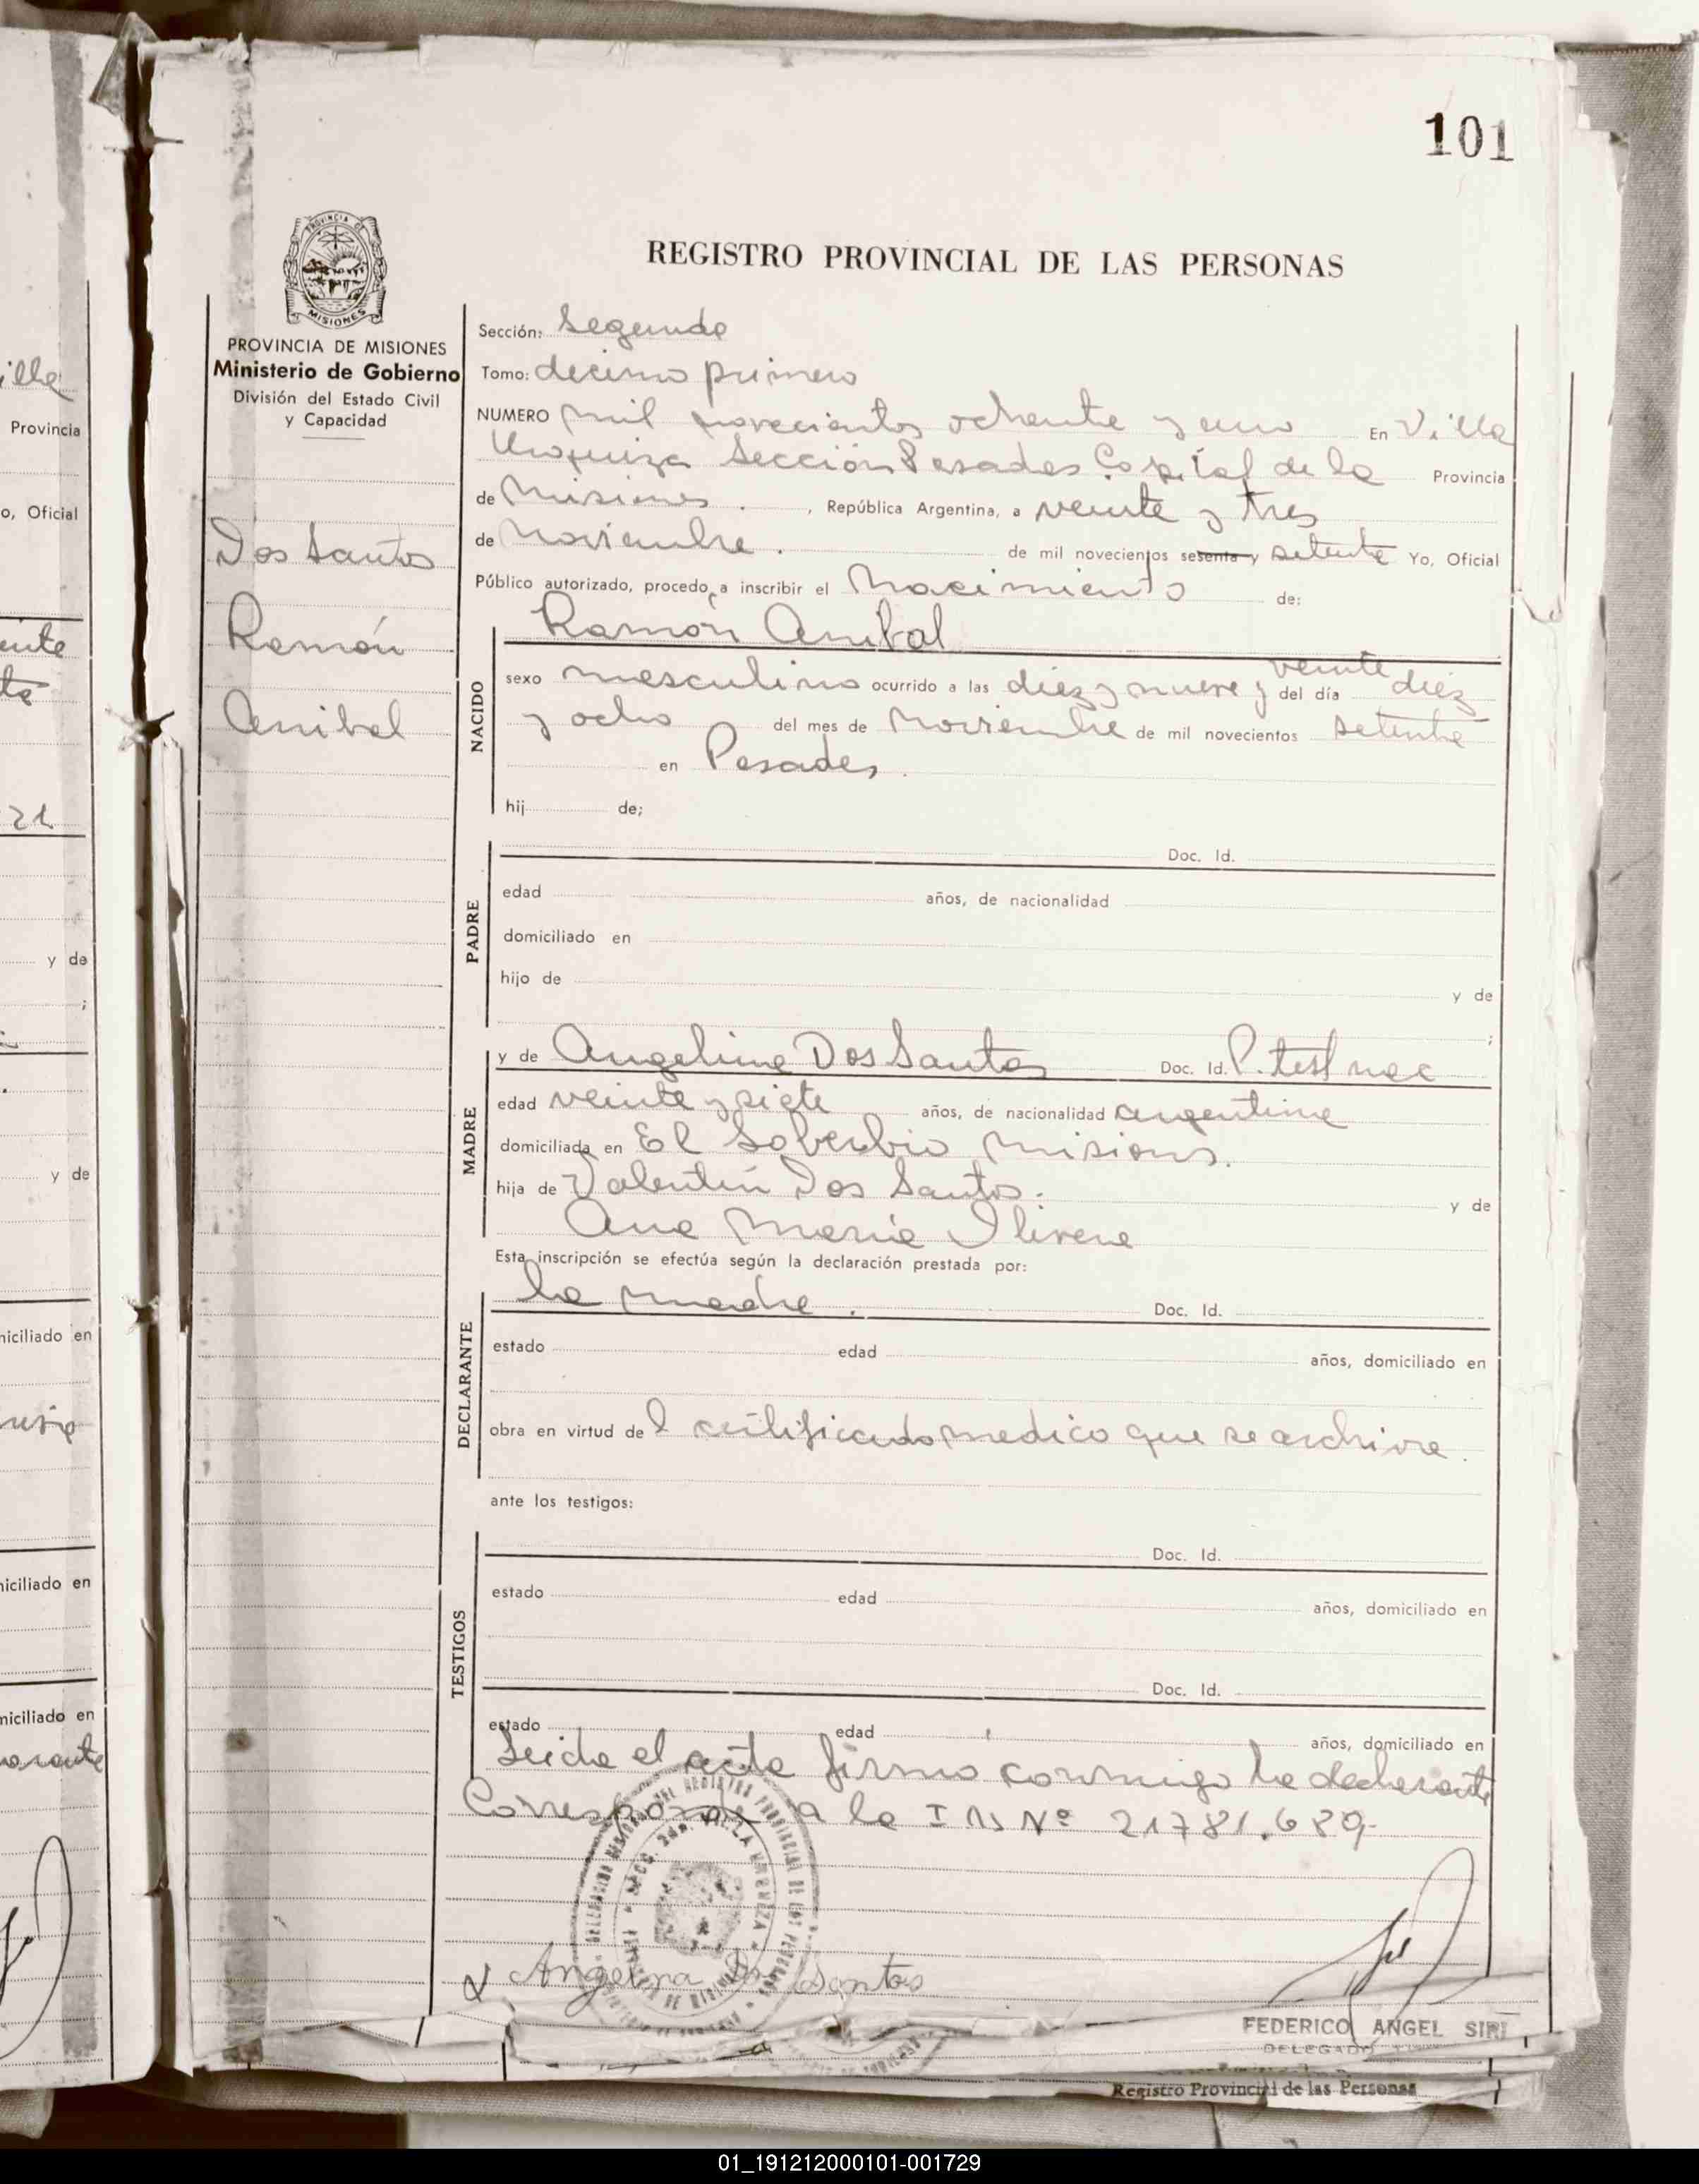 101
REGISTRO PROVINCIAL DE LAS PERSONAS
PROVINCIA DE MISIONES
Ministerio de Gobierno
División del Estado Civil
y Capacidad
Dos Santos
Ramón
Anibal
Sección: Segunda
Tomo: decimo primero
NUMERO mil novecientos ochenta y uno En Villa
Urquiza Sección Posadas Capital de la Provincia
de Misiones . , República Argentina, a veinte y tres
de Noviembre . de mil novecientos sesenta y setenta Yo, Oficial
Público autorizado, procedo a inscribir el Nacimiento de:
NACIDO
Ramón Anibal
veinte
sexo masculino ocurrido a las diez y nueve y del día diez
y ocho del mes de Noviembre de mil novecientos setenta
en Posadas.
hij de;
PADRE
Doc. Id.
edad años, de nacionalidad
domiciliado en
hijo de y de
;
MADRE
y de Angelina Dos Santos Doc. Id. P. test nac
edad veinte y siete años, de nacionalidad argentina
domiciliada en El Soberbio Misiones.
hija de Valentín Dos Santos. y de
Ana Maria
Esta inscripción se efectúa según la declaración prestada por:
DECLARANTE
la madre . Doc. Id.
estado edad años, domiciliado en
obra en virtud de l certificado medico que se archiva.
ante los testigos:
TESTIGOS
Doc. Id.
estado edad años, domiciliado en
Doc. Id.
estado edad años, domiciliado en
Leida el acta firma conmigo la declarante
Corresponde a la I N Nº 21781.689-
Angelina Dos Santos
FEDERICO ANGEL SIRI
DELEGADO
Registro Provincial de las Personas
01_191212000101-001729